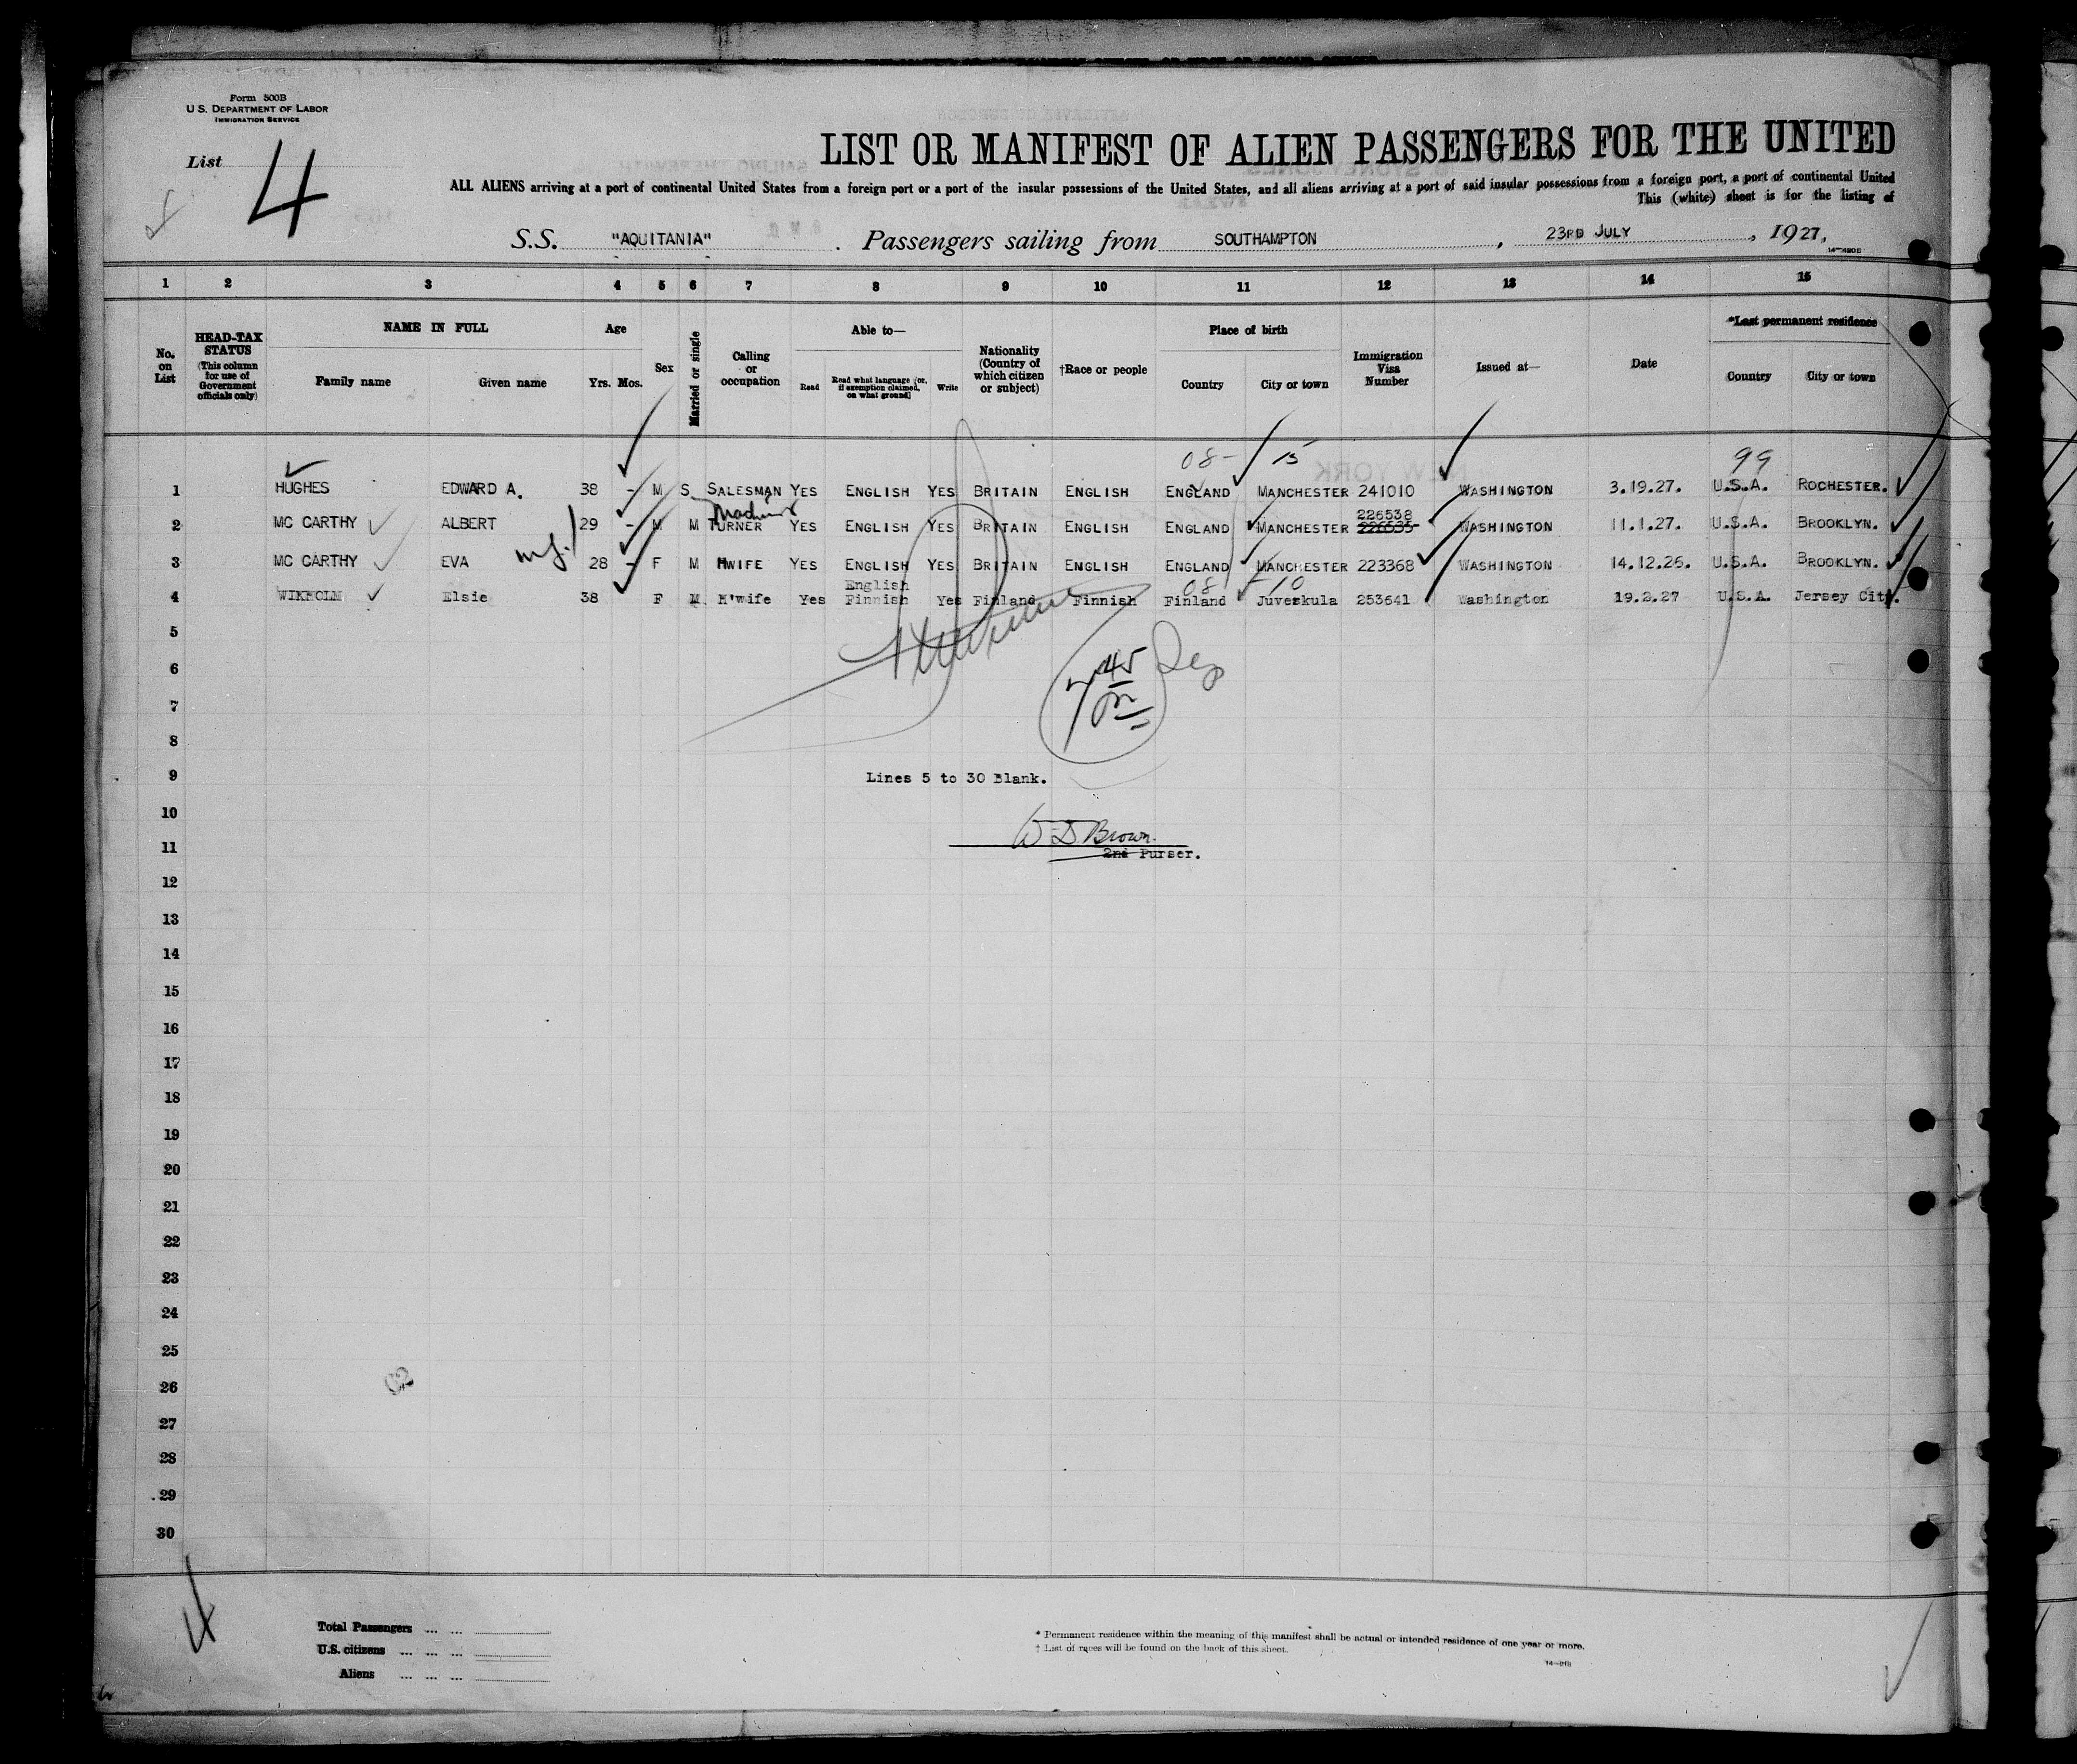 Form 500B
U.S. DEPARTMENT OF LABOR
IMMIGRATION SERVICE
List 4
LIST OR MANIFEST OF ALIEN PASSENGERS FOR THE UNITED
ALL ALIENS arriving at a port of continental United States from a foreign port or a port of the insular possessions of the United States, and all aliens arriving at a port of said insular possessions from a foreign port, a port of continental United
This (white) sheet is for the listing of
S.S. "AQUITANIA" . Passengers sailing from SOUTHAMPTON , 23RD JULY , 1927,
1 2 3 4 5 6 7 8 9 10 11 12 13 14 15
No. on List
HEAD-TAX STATUS (This column for use of Government officials only)
NAME IN FULL
Family name Given name
Age
Yrs. Mos.
Sex
Married or single
Calling or occupation
Able to—
Read
Read what language [or, if exemption claimed, on what ground]
Write
Nationality (Country of which citizen or subject)
†Race or people
Place of birth
Country City or town
Immigration Visa Number
Issued at—
Date
*Last permanent residence
Country City or town
08- 15 99
1 HUGHES EDWARD A. 38 - M S SALESMAN YES ENGLISH YES BRITAIN ENGLISH ENGLAND MANCHESTER 241010 WASHINGTON 3.19.27. U.S.A. ROCHESTER.
226538
2 MC CARTHY ALBERT 29 - M M TURNER YES ENGLISH YES BRITAIN ENGLISH ENGLAND MANCHESTER 226535 WASHINGTON 11.1.27. U.S.A. BROOKLYN.
3 MC CARTHY EVA 28 - F M HWIFE YES ENGLISH YES BRITAIN ENGLISH ENGLAND MANCHESTER 223368 WASHINGTON 14.12.26. U.S.A. BROOKLYN.
English 08 10
4 WIKHOLM Elsie 38 F M. H'wife Yes Finnish Yes Finland Finnish Finland Juveskula 253641 Washington 19.2.27 U.S.A. Jersey City.
5
6
7
8
9
Lines 5 to 30 Blank.
10
W D Brown.
11
2nd Purser.
12
13
14
15
16
17
18
19
20
21
22
23
24
25
26
27
28
29
30
4
Total Passengers ... ...
U.S. citizens ... ... ...
Aliens ... ... ...
* Permanent residence within the meaning of this manifest shall be actual or intended residence of one year or more.
† List of races will be found on the back of this sheet.